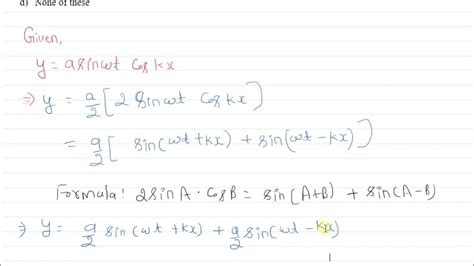 d) None of these
Given,
y = a sin ωt cos kx
⇒ y = a/2 [ 2 sin ωt cos kx ]
= a/2 [ sin (ωt + kx) + sin (ωt - kx) ]
Formula: 2 sin A . cos B = sin (A+B) + sin (A-B)
⇒ y = a/2 sin (ωt + kx) + a/2 sin (ωt - kx)